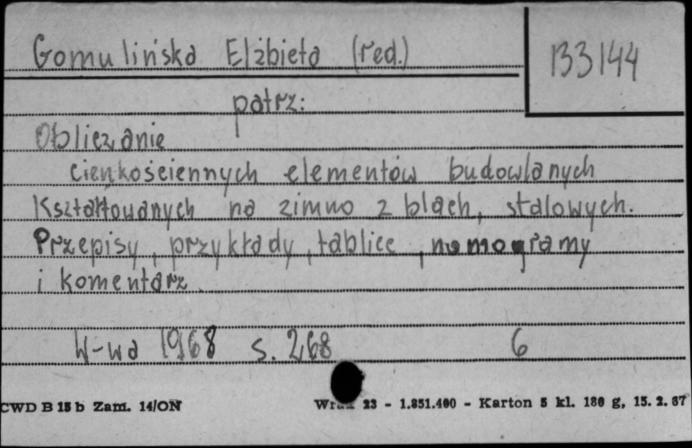 Gomulińska Elżbieta (red.)
133144
patrz:
Obliczanie
cienkościennych elementów budowlanych
Kształtowanych na zimno z blach, stalowych.
Przepisy, przykłady, tablice, nomogramy
i komentarz.
W-wa 1968 s. 268 6
CWD B 15 b Zam. 14/ON
23 - 1.851.400 - Karton 5 kl. 180 g, 15. 2. 67